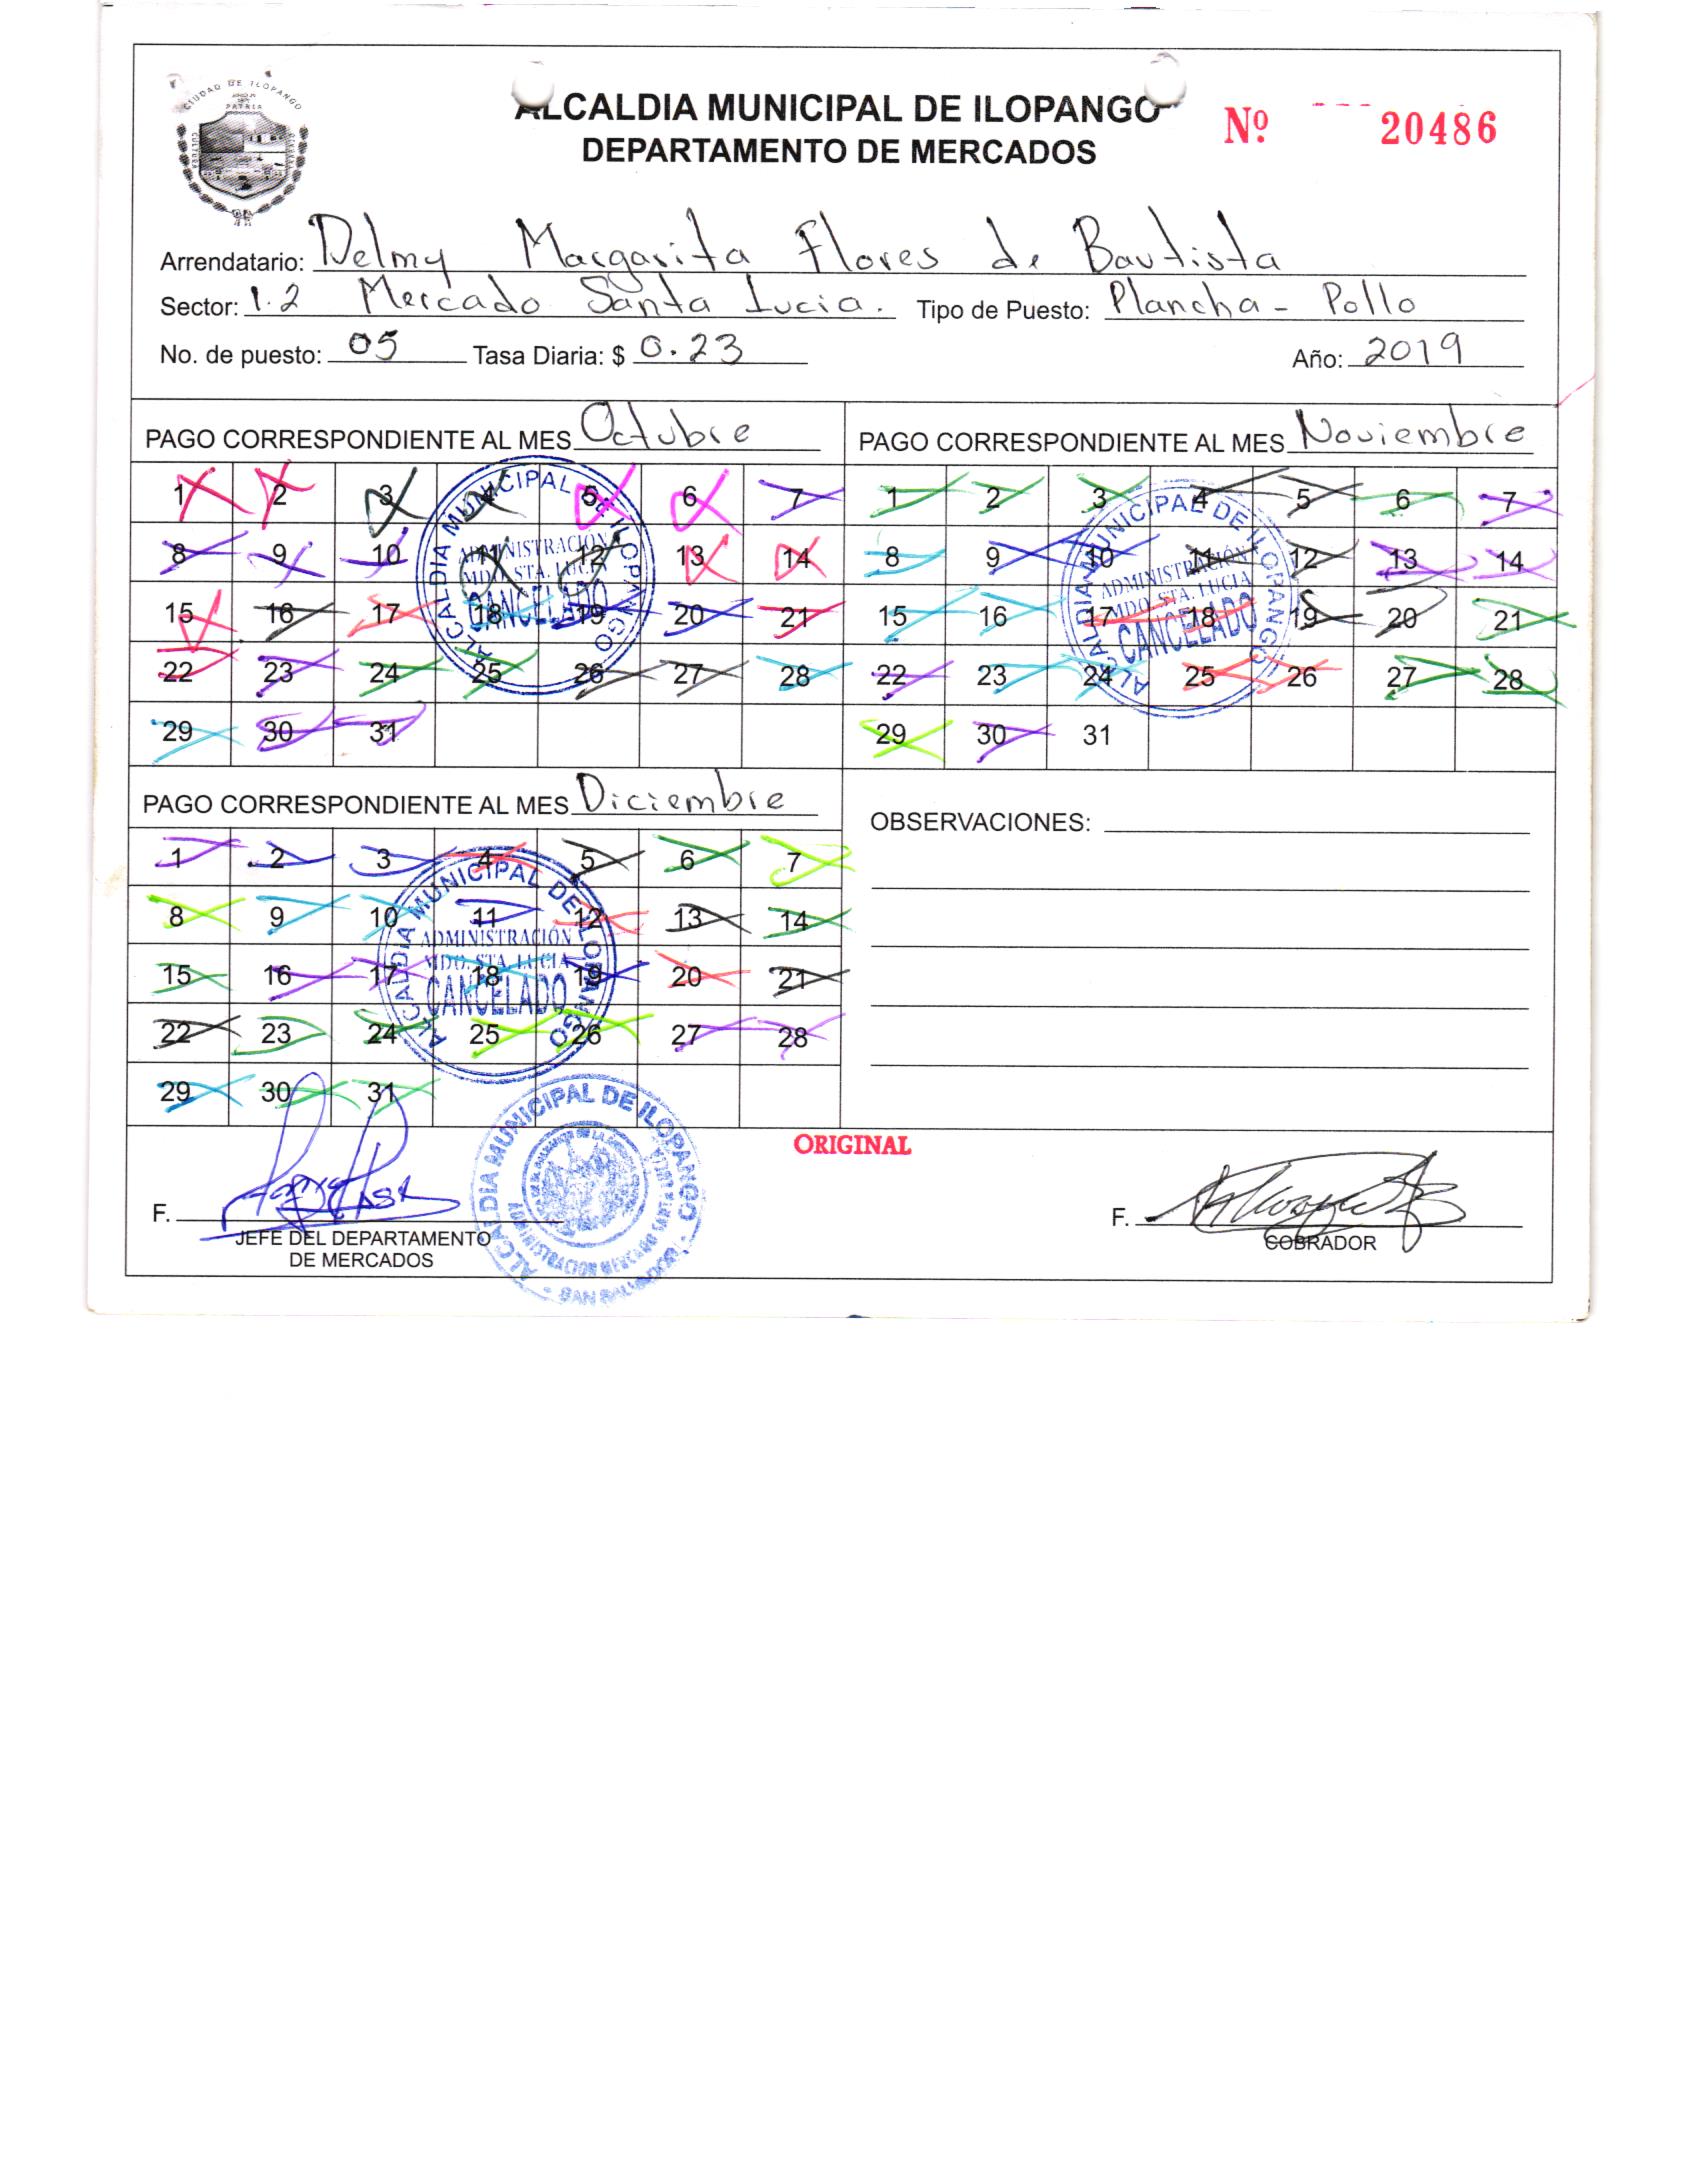 CIUDAD DE ILOPANGO
PATRIA
CULTURA
ALCALDIA MUNICIPAL DE ILOPANGO
DEPARTAMENTO DE MERCADOS
Nº 20486
Arrendatario: Delmy Margarita Flores de Bautista
Sector: 1.2 Mercado Santa Lucia. Tipo de Puesto: Plancha - Pollo
No. de puesto: 05 Tasa Diaria: $ 0.23 Año: 2019
PAGO CORRESPONDIENTE AL MES Octubre
1 2 3 4 5 6 7
8 9 10 11 12 13 14
15 16 17 18 19 20 21
22 23 24 25 26 27 28
29 30 31
ALCALDIA MUNICIPAL DE ILOPANGO
ADMINISTRACIÓN
MDO. STA. LUCIA
CANCELADO
PAGO CORRESPONDIENTE AL MES Noviembre
1 2 3 4 5 6 7
8 9 10 11 12 13 14
15 16 17 18 19 20 21
22 23 24 25 26 27 28
29 30 31
ALCALDIA MUNICIPAL DE ILOPANGO
ADMINISTRACIÓN
MDO. STA. LUCIA
CANCELADO
PAGO CORRESPONDIENTE AL MES Diciembre
1 2 3 4 5 6 7
8 9 10 11 12 13 14
15 16 17 18 19 20 21
22 23 24 25 26 27 28
29 30 31
ALCALDIA MUNICIPAL DE ILOPANGO
ADMINISTRACIÓN
MDO. STA. LUCIA
CANCELADO
OBSERVACIONES:
ORIGINAL
F.
JEFE DEL DEPARTAMENTO
DE MERCADOS
ALCALDIA MUNICIPAL DE ILOPANGO
ADMINISTRACION MERCADO SANTA LUCIA
SAN SALVADOR
F.
COBRADOR